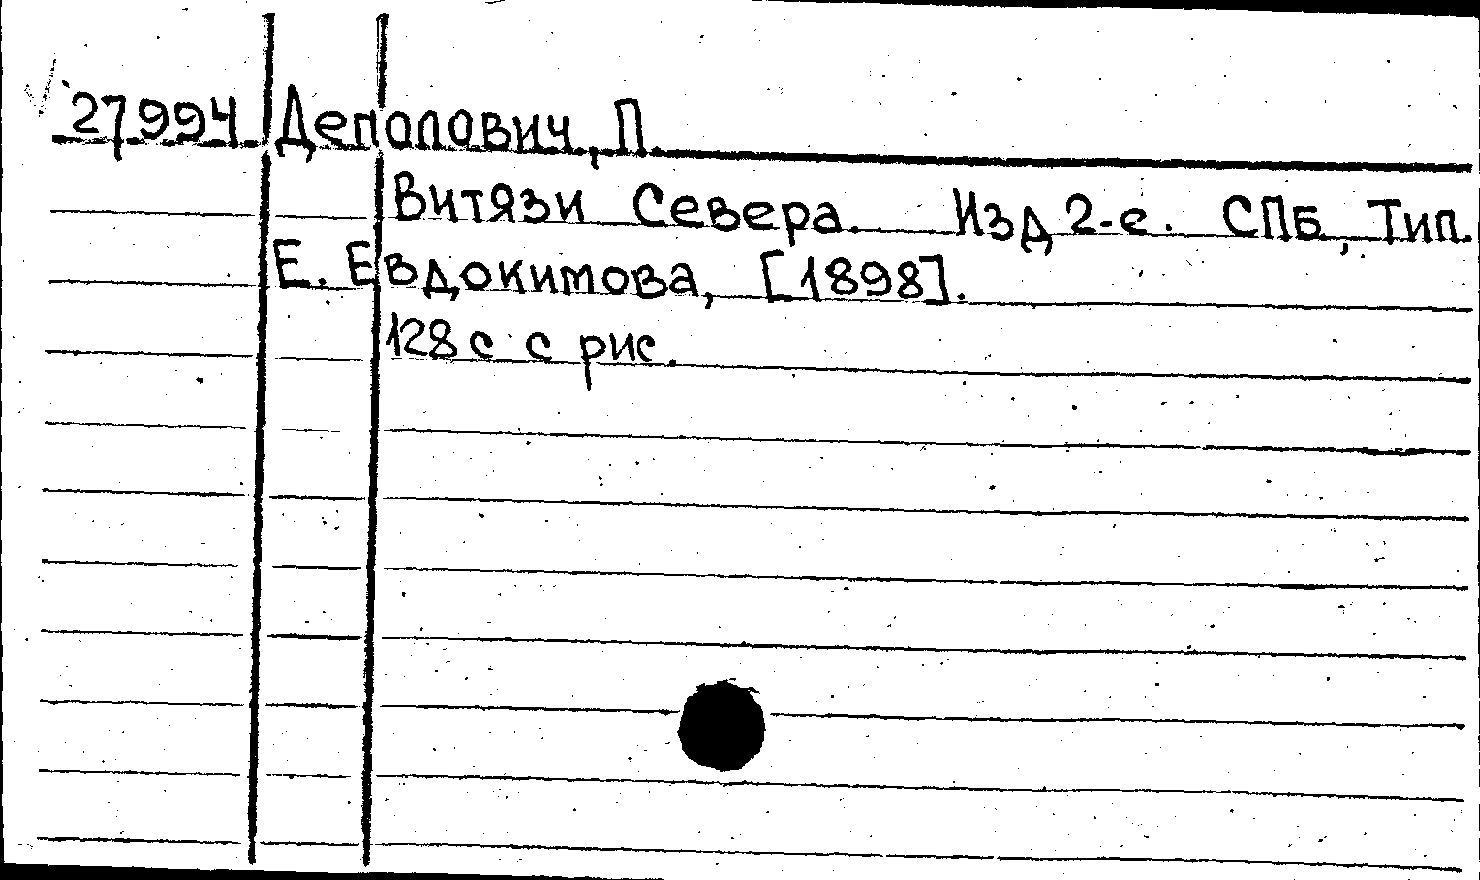 27994 Деполович, П.
Витязи Севера. Изд 2-е. СПб, Тип.
Е. Евдокимова, [1898].
128 с с рис.